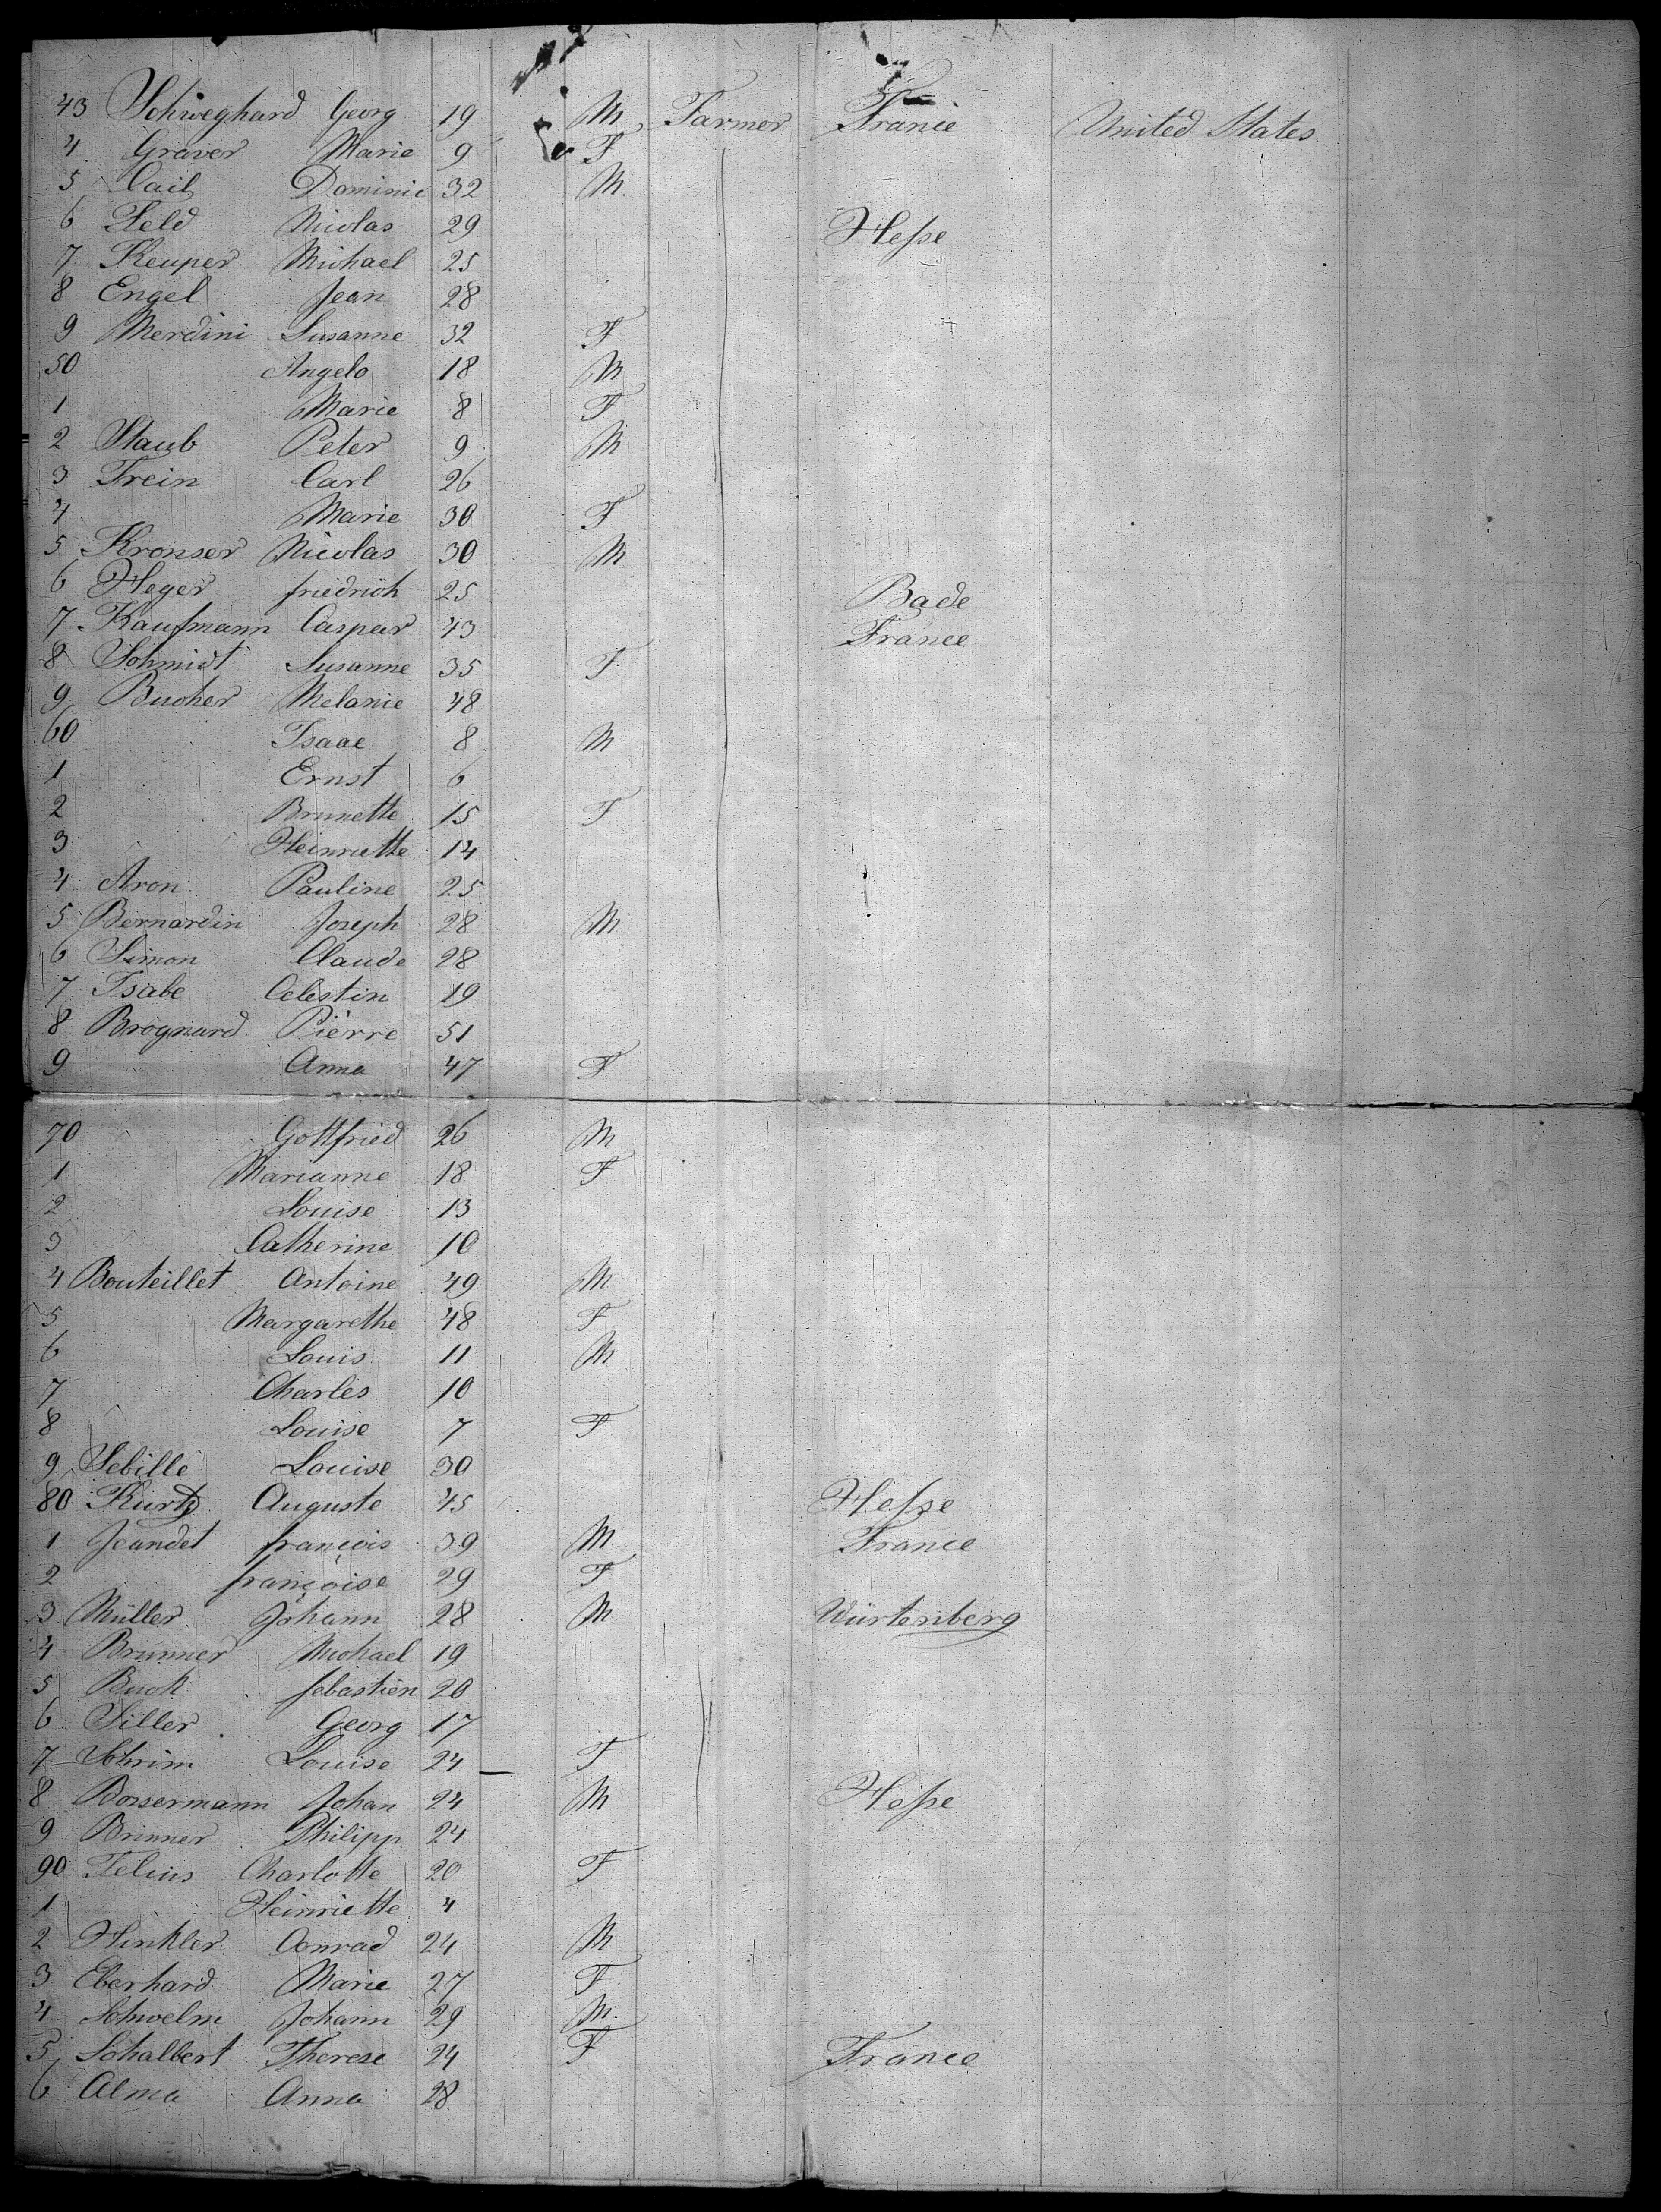 43 Schweghard Georg 19 M Farmer France United States
4 Graver Marie 9 F
5 Cail Dominic 32 M
6 Feld Nicolas 29 Hesse
7 Keuper Michael 25
8 Engel Jean 28
9 Merdini Susanne 32 F
50 Angelo 18 M
1 Marie 8 F
2 Staub Peter 9 M
3 Frein Carl 26
4 Marie 30 F
5 Kronser Nicolas 30 M
6 Heger friedrich 25 Bade
7 Kaufmann Caspar 43 France
8 Schmidt Susanne 35 F
9 Bucher Melanie 48
60 Isaac 8 M
1 Ernst 6
2 Brunette 15 F
3 Heinriette 14
4 Aron Pauline 25
5 Bernardin Joseph 28 M
6 Simon Claude 28
7 Isabe Celestin 19
8 Brognard Pierre 51
9 Anna 47 F
70 Gottfried 26 M
1 Marianne 18 F
2 Louise 13
3 Catherine 10
4 Bouteillet Antoine 49 M
5 Margarethe 48 F
6 Louis 11 M
7 Charles 10
8 Louise 7 F
9 Sebille Louise 30
80 Kurtz Auguste 45 Hesse
1 Jeandet françois 39 M France
2 françoise 29 F
3 Müller Johann 28 M Würtenberg
4 Brunner Michael 19
5 Buck Sebastien 20
6 Siller Georg 17
7 Schrim Louise 24 F
8 Bossermann Johan 24 M Hesse
9 Brinner Philipp 24
90 Felius Charlotte 20 F
1 Heinriette 4
2 Hinkler Conrad 24 M
3 Eberhard Marie 27 F
4 Schwelm Johann 29 M
5 Schalbert Therese 24 F France
6 Alma Anna 28